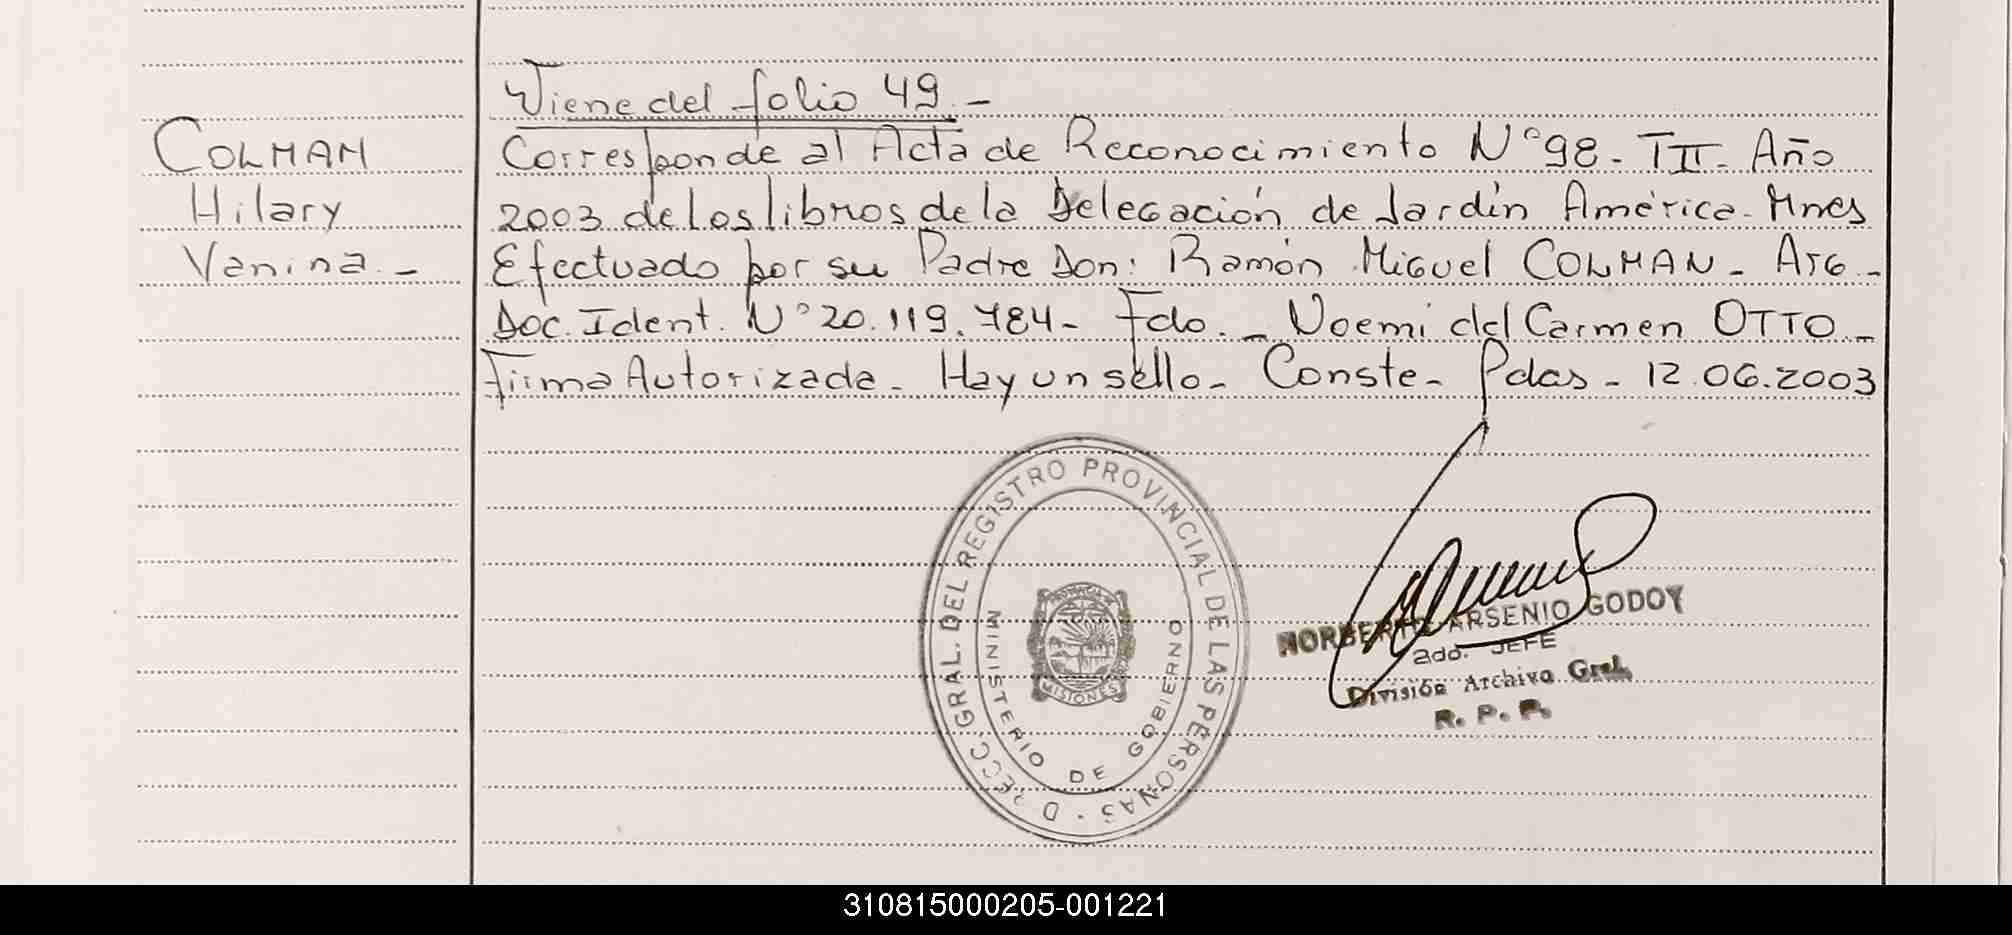 Viene del folio 49.-
COLMAN
Hilary
Vanina.-
Corresponde al Acta de Reconocimiento N° 98- TII- Año
2003 de los libros de la Delegación de Jardín América- Mnes
Efectuado por su Padre Don: Ramón Miguel COLMAN- Arg-
Doc. Ident. N° 20.119.784- Fdo.- Noemi del Carmen OTTO-
Firma Autorizada- Hay un sello- Conste- Pdas- 12.06.2003
D RECC. GRAL. DEL REGISTRO PROVINCIAL DE LAS PERSONAS
MINISTERIO DE GOBIERNO
PROVINCIA DE
MISIONES
NORBERTO ARSENIO GODOY
2do. JEFE
División Archivo Gral.
R. P. P.
310815000205-001221